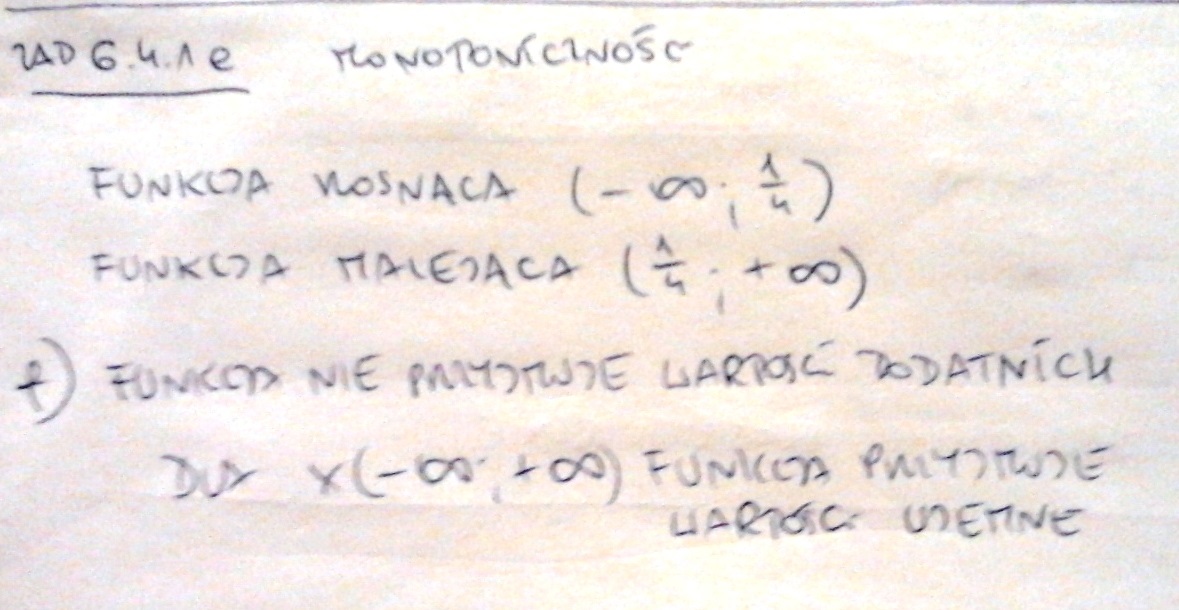 ZAD 6.4.1 e MONOTONICZNOŚĆ
FUNKCJA ROSNACA (-∞; 1/4)
FUNKCJA MALEJACA (1/4; +∞)
f) FUNKCJA NIE PRZYJMUJE WARTOŚĆ DODATNICH
DLA x(-∞; +∞) FUNKCJA PRZYJMUJE
WARTOŚCI UJEMNE